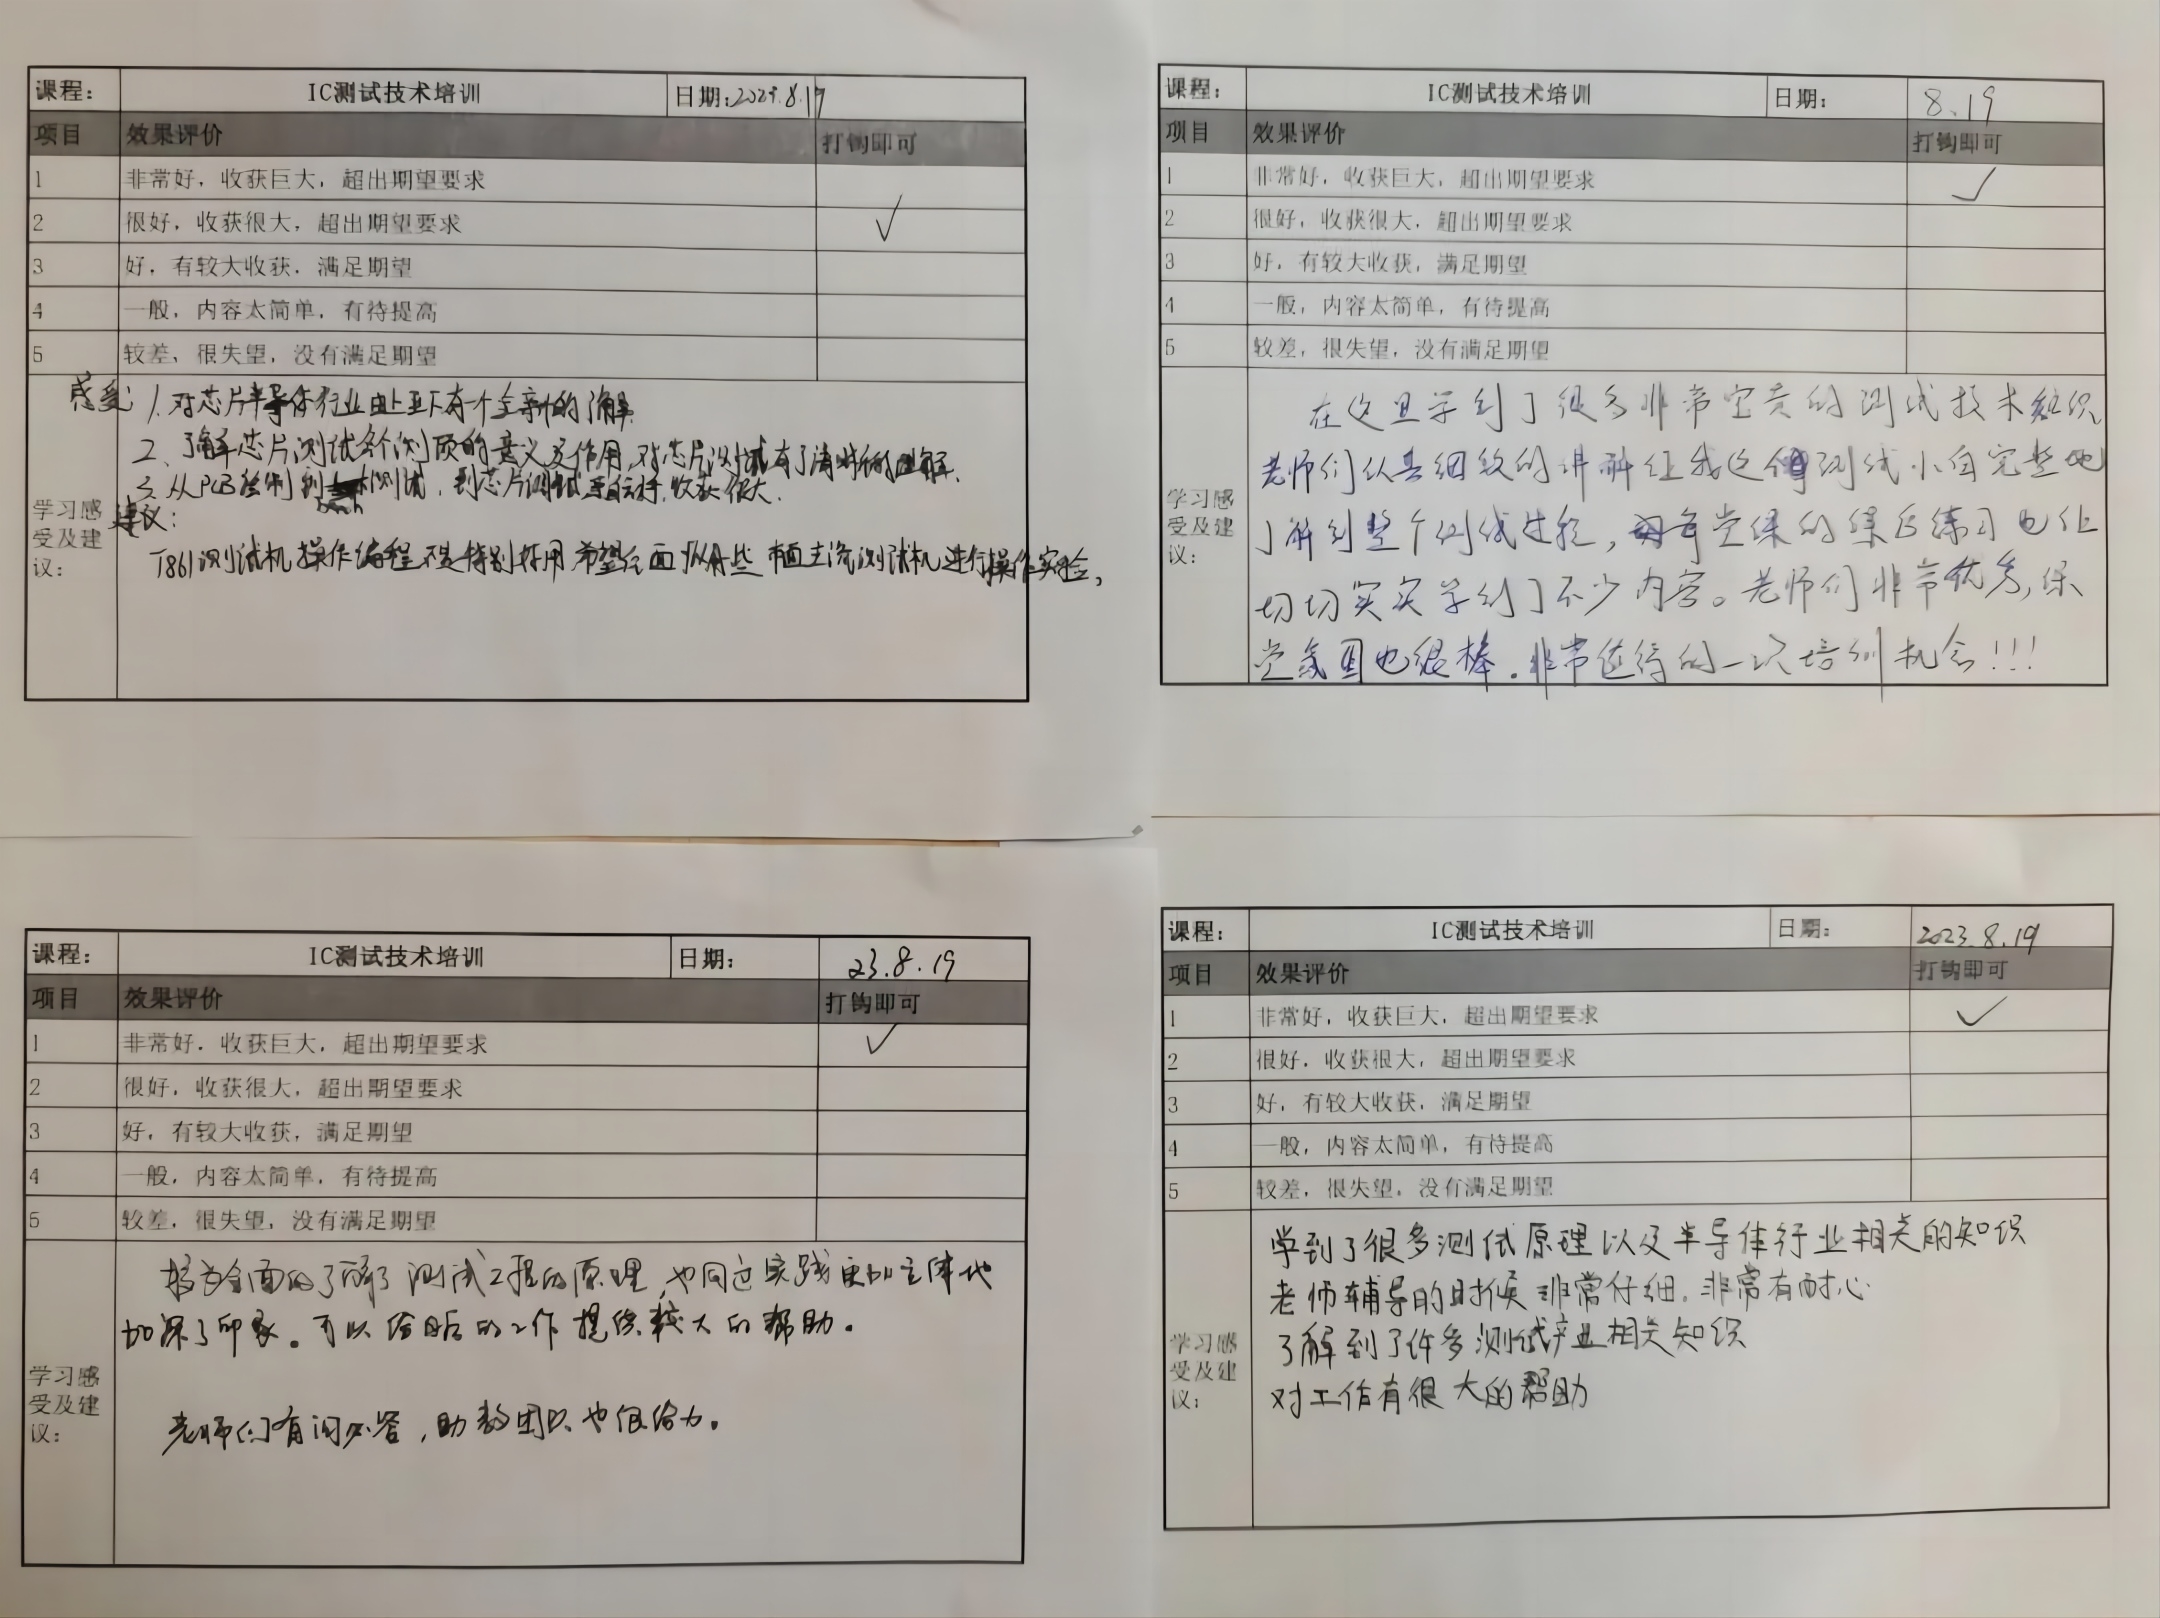 课程： IC测试技术培训 日期：2023.8.19
项目 效果评价 打钩即可
1 非常好，收获巨大，超出期望要求
2 很好，收获很大，超出期望要求 ✓
3 好，有较大收获，满足期望
4 一般，内容太简单，有待提高
5 较差，很失望，没有满足期望
学习感
受及建
议：
感受：1.对芯片半导体行业由上至下有一个全新的了解
2、了解芯片测试各个测项的意义及作用，对芯片测试有了清晰的理解.
3、从PCB绘制到测试，到芯片测试 收获很大.
建议：
T861测试机操作编程不是特别好用，希望后面 些市面主流测试机进行操作实验，
课程： IC测试技术培训 日期： 8.19
项目 效果评价 打钩即可
1 非常好，收获巨大，超出期望要求 ✓
2 很好，收获很大，超出期望要求
3 好，有较大收获，满足期望
4 一般，内容太简单，有待提高
5 较差，很失望，没有满足期望
学习感
受及建
议：
在这里学到了很多非常宝贵的测试技术知识
老师们认真细致的讲解让我这个测试小白完整地
了解到整个测试过程，每堂课的课后练习也让
切切实实学到了不少内容。老师们非常优秀，课
堂氛围也很棒．非常值得的一次培训机会!!!
课程： IC测试技术培训 日期： 23.8.19
项目 效果评价 打钩即可
1 非常好，收获巨大，超出期望要求 ✓
2 很好，收获很大，超出期望要求
3 好，有较大收获，满足期望
4 一般，内容太简单，有待提高
5 较差，很失望，没有满足期望
学习感
受及建
议：
较为全面的了解了测试工程的原理，也同过实践更加立体地
加深了印象。可以给日后的工作提供较大的帮助。
老师们有问必答，助教团队也很给力。
课程： IC测试技术培训 日期： 2023.8.19
项目 效果评价 打钩即可
1 非常好，收获巨大，超出期望要求 ✓
2 很好，收获很大，超出期望要求
3 好，有较大收获，满足期望
4 一般，内容太简单，有待提高
5 较差，很失望，没有满足期望
学习感
受及建
议：
学到了很多测试原理以及半导体行业相关的知识
老师辅导的时候非常仔细，非常有耐心
了解到了许多测试产业相关知识
对工作有很大的帮助